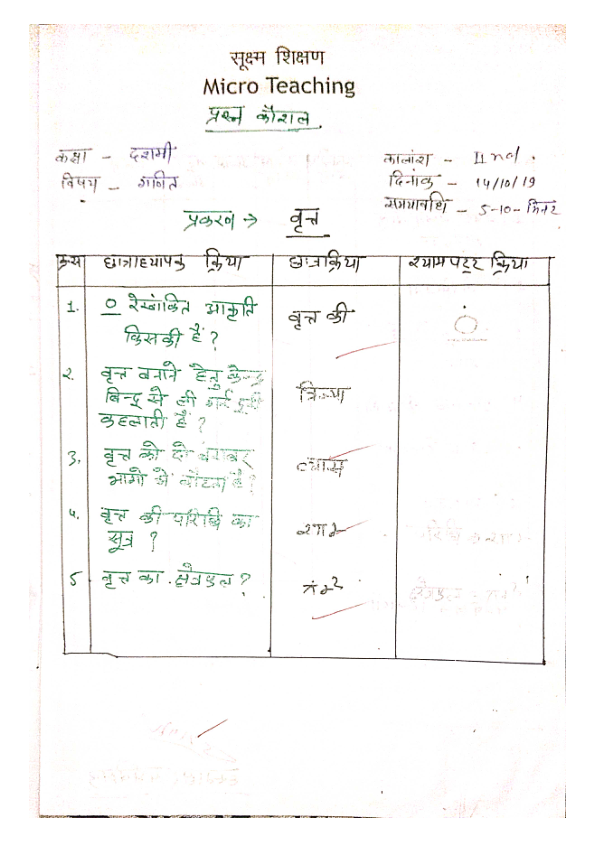 सूक्ष्म शिक्षण
Micro Teaching
प्रश्न कौशल
कक्षा - दशमी
कालांश - IInd.
विषय - गणित
दिनांक - 14/10/19
समयावधि - 5-10-मिनट
प्रकरण → वृत्त
क्रम छात्राध्यापक क्रिया छात्रक्रिया श्यामपट्ट क्रिया
1. रेखांकित आकृति
किसकी है ?
वृत्त की
2. वृत्त बनाने हेतु केन्द्र
बिन्दु से ली गई दूरी
कहलाती है ?
त्रिज्या
3. वृत्त को दो बराबर
भागो मे बाँटता है?
व्यास
4. वृत्त की परिधि का
सूत्र ?
2πr
परिधि = 2πr
5. वृत्त का क्षेत्रफल ?
πr²
क्षेत्रफल = πr²